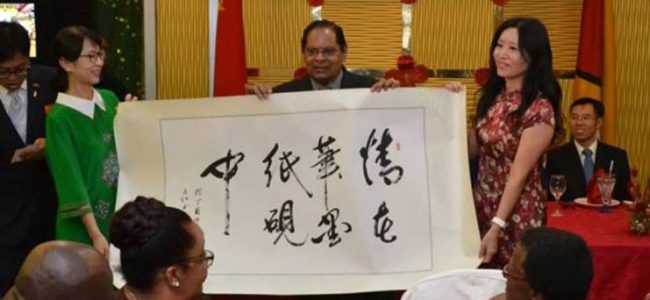 情在
筆墨
紙硯
中